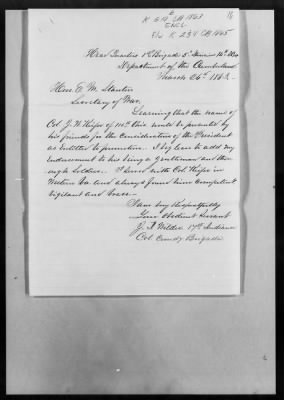 Head Quarters 1st Brigade 5th Division 14th A.C.
Department of the Cumberland
March 26th 1863.
Hon. E. M. Stanton
Secretary of War.
Learning that the name of
Col. J. W. Keifer of 110th Ohio will be presented by
his friends for the consideration of the President
as entitled to promotion. I beg leave to add my
endorsement to his being a gentleman and thor-
ough soldier. I served with Col. Keifer in
Western Va. and always found him competent
vigilant and brave.
I am very Respectfully
Your obedient Servant
J. T. Wilder 17th Indiana
Col. Comdg Brigade